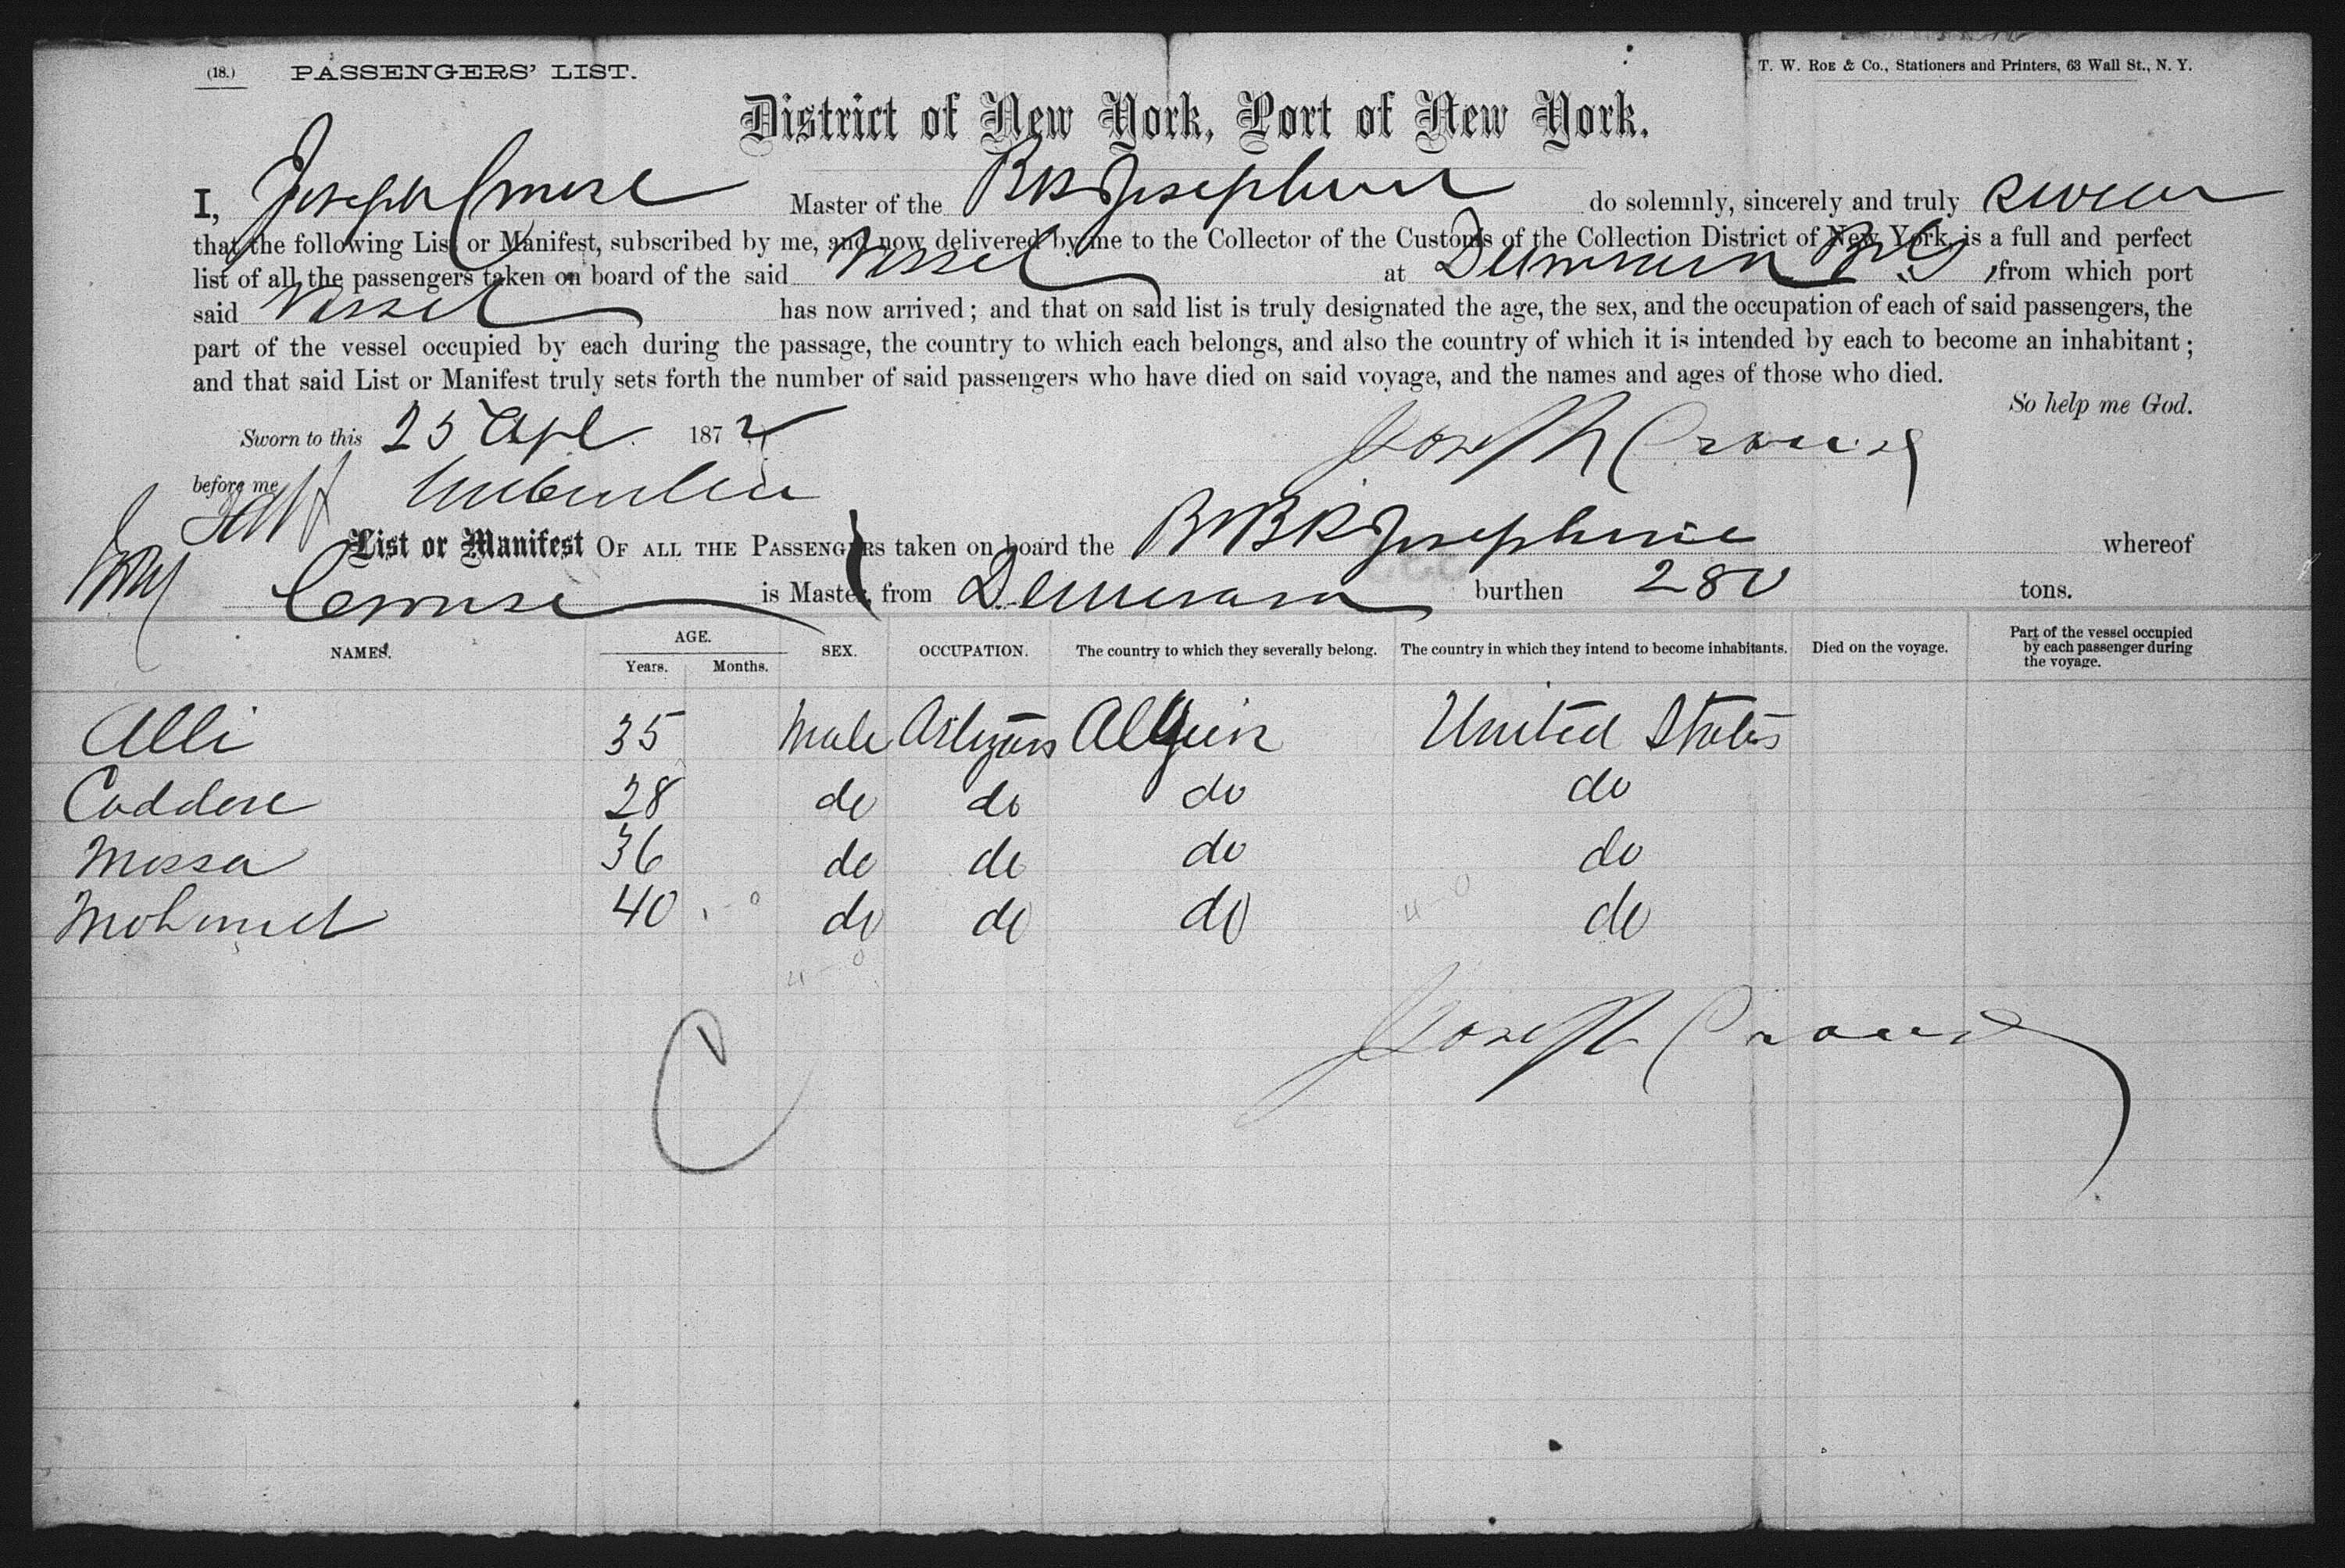 (18.) PASSENGERS' LIST.
T. W. ROE & Co., Stationers and Printers, 63 Wall St., N. Y.
District of New York, Port of New York.
I, Joseph Crouse Master of the BK Josephine do solemnly, sincerely and truly swear
that the following List or Manifest, subscribed by me, and now delivered by me to the Collector of the Customs of the Collection District of New York, is a full and perfect
list of all the passengers taken on board of the said Vessel at Demerara B.G, from which port
said Vessel has now arrived; and that on said list is truly designated the age, the sex, and the occupation of each of said passengers, the
part of the vessel occupied by each during the passage, the country to which each belongs, and also the country of which it is intended by each to become an inhabitant;
and that said List or Manifest truly sets forth the number of said passengers who have died on said voyage, and the names and ages of those who died.
So help me God.
Sworn to this 25 Apl. 1872
Joseph Crouse
before me
List or Manifest OF ALL THE PASSENGERS taken on board the Br BK Josephine whereof
Crouse is Master, from Demerara burthen 280 tons.
NAMES. AGE. Years. Months. SEX. OCCUPATION. The country to which they severally belong. The country in which they intend to become inhabitants. Died on the voyage. Part of the vessel occupied by each passenger during the voyage.
Alli 35 Male Artizans Algiers United States
Caddore 28 do do do do
Mossa 36 do do do do
Mohmet 40 do do do do
Joseph Crouse